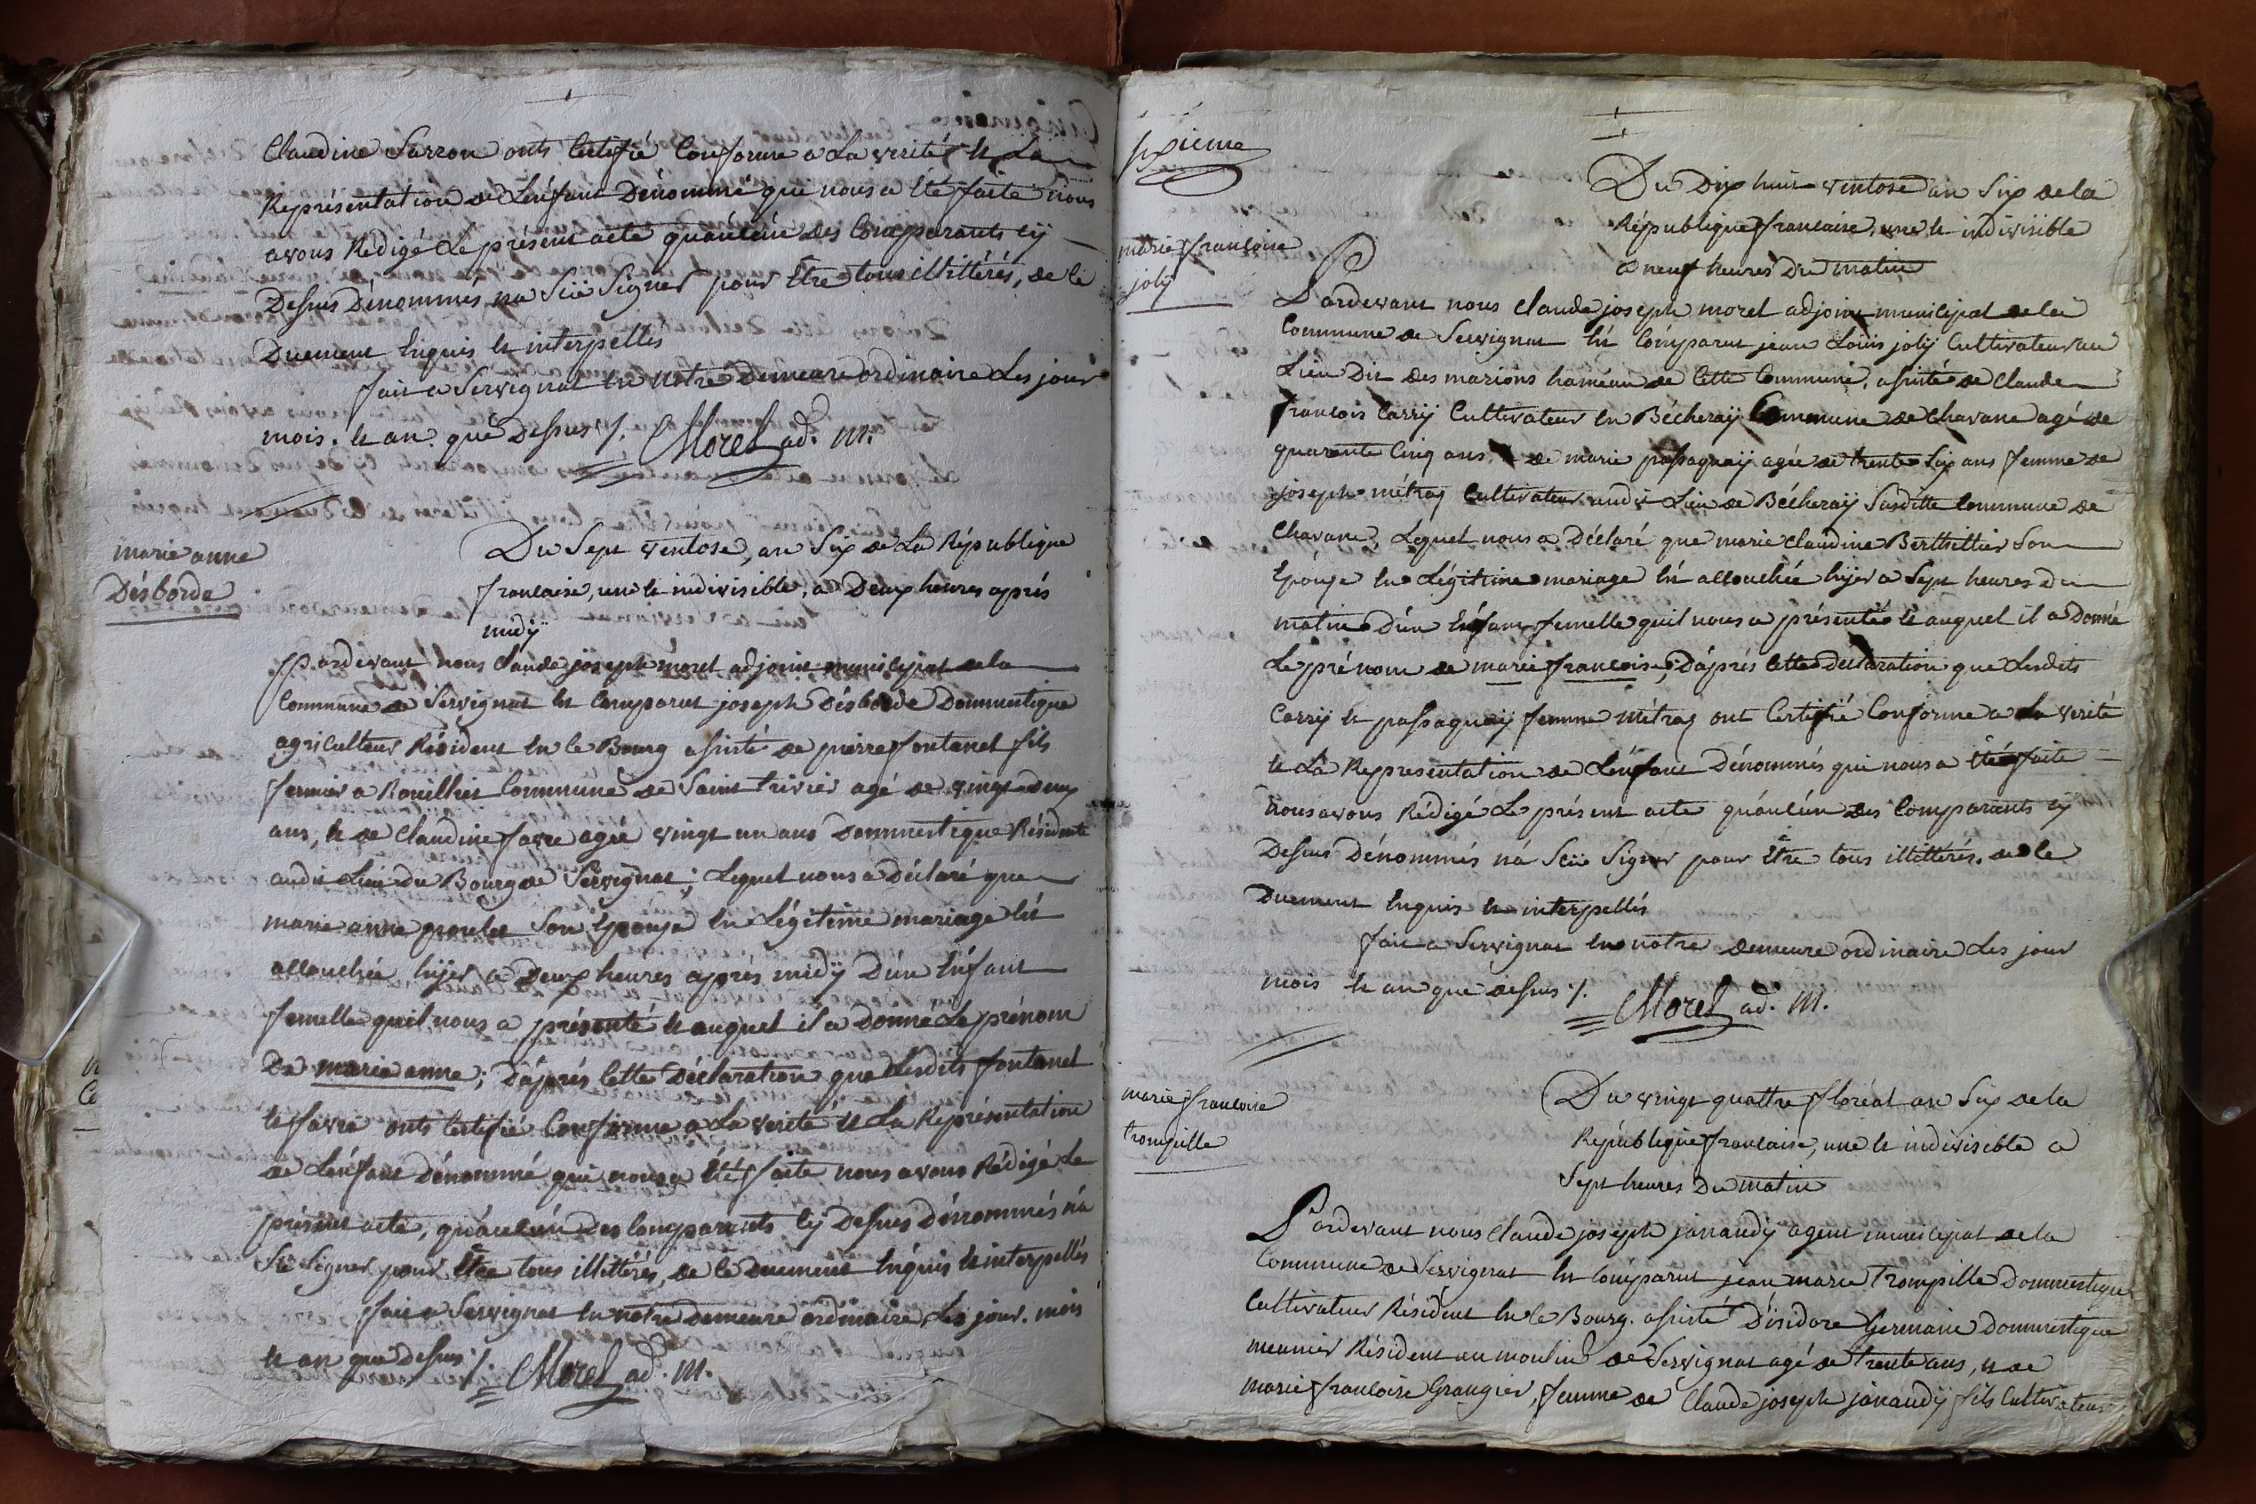 Claudine Sarron onts Certifié Conforme a La verité, et La
Représentation de L'énfant Dénommé qui nous a Été faite nous
avons Rédigé Le présent acte qu'aucún des Comparants cÿ
Dessus Dénommés, na Scü Signer pour Être tous illittérés, de ce
Duement Enquis et interpellés
fait a Servignat En notre Demeure ordinaire Les jour
mois. et an que Dessus ./. Morel ad. m.
marie anne
Désborde
Du Sept ventose, an Six de La République
francaise, une et indivisible, a Deux heures aprés
midÿ
Pardevant nous claude joseph morel adjoint municipal de la
Commune de Servignat Est Comparut joseph Désborde Dommestique
agriculteur Résident En le Bourg assisté de pierre fontanel fils
fermier a Rouilhet Commune de Saint trivier agé de vingt deux
ans, et de Claudine favre agée vingt un ans Dommestique Résidente
audit Lieu du Bourg de Servignat; Lequel nous a Déclaré que
marie anne proulet Son Epouse En Légitime mariage Est
accouchée hÿer a Deux heures aprés midÿ D'un Enfant
femelle qu'il nous a présenté et auquel il a Donné Le prénom
De marie anne; D'aprés Cette Déclaration que Lesdits fontanel
et favre onts Certifié Conforme a La verité et La Représentation
de L'énfant dénommé qui nous a Été faite nous avons Rédigé Le
présent acte, qu'aucún des Comparants cÿ Dessus Dénommés n'a
Scü Signer pour Être tous illittérés, de ce Duement Enquis et interpellés
fait a Servignat En notre Demeure ordinaire Les jour. mois
et an que Dessus ./. Morel ad. m.
sixieme
marie francoise
jolÿ
Du Dix huit ventose an Six de la
République francaise, une et indivisible
a neuf heures Du matin
Pardevant nous claude joseph morel adjoint municipal de la
Commune de Servignat Est Comparut jean Louis jolÿ Cultivateur au
Lieu Dit des marions haméau de Cette Commune, assisté de Claude
francois Carrÿ Cultivateur En Bécheraÿ Commune de Chavane agé de
quarante Cinq ans, et de marie passaquaÿ agée de trente Six ans femme de
joseph métraz Cultivateur audit Lieu de Bécheraÿ Susditte Commune de
Chavane, Lequel nous a Déclaré que marie claudine Berthillier Son
Epouse En Légitime mariage Est accouchée hÿer a Sept heures du
matin D'un Enfant femelle quil nous a présenté et auquel il a Donné
Le prénom de marie francoise; D'aprés Cette Déclaration que Lesdits
Carrÿ et passaquaÿ femme métraz ont Certifié Conforme a La verité
et La Représentation de L'énfant Dénommés qui nous a Été faite
nous avons Rédigé Le présent acte qu'aucún des Comparants cÿ
Dessus Dénommés n'á Scü Signer pour Être tous illittérés. de ce
Duement Enquis et interpellés
fait a Servignat En notre demeure ordinaire Les jour
mois et an que dessus ./. Morel ad. m.
marie francoise
trompille
Du vingt quattre floréal an Six de la
République francaise, une et indivisible a
Sept heures Du matin
Pardevant nous claude joseph janaudÿ agent municipal de la
Commune de Servignat Est Comparut jean marie Trompille Dommestique
Cultivateur Résident En le Bourg. assisté D'isidore Germain Dommestique
meunier Résident au moulin de Servignat agé de trente ans, et de
marie francoise Grangier, femme de Claude joseph janaudÿ fils Cultivateur